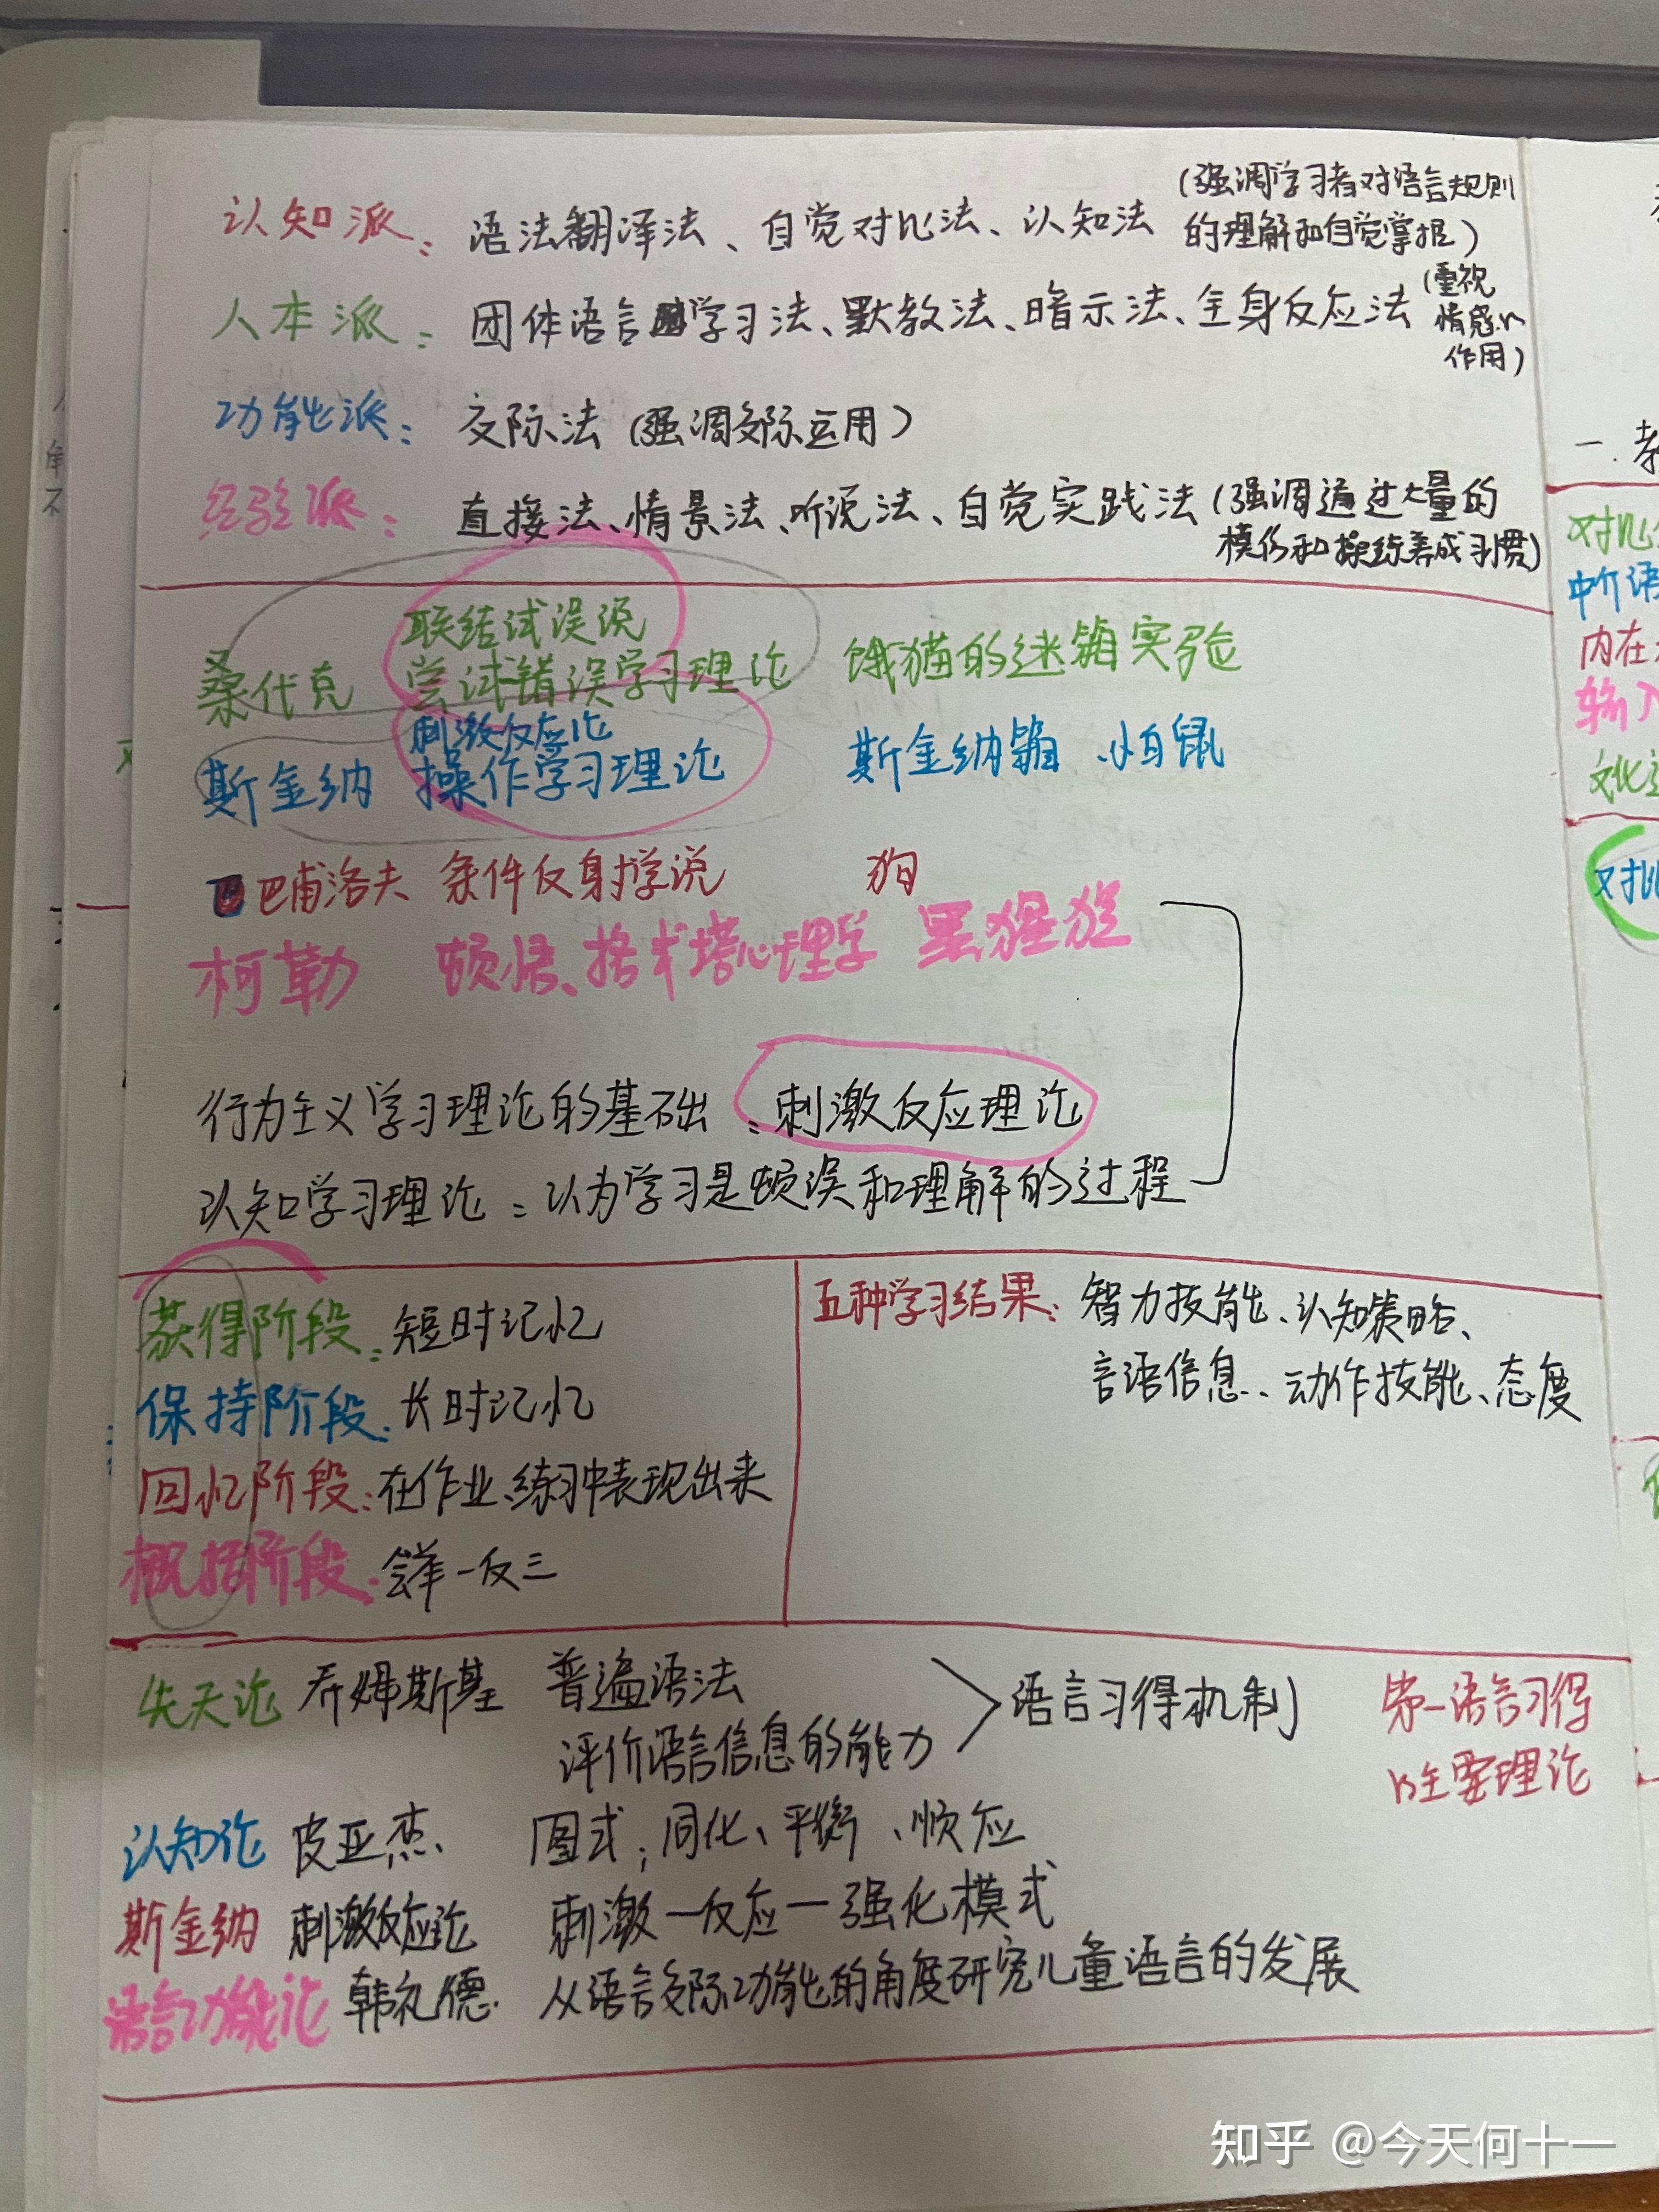 认知派：语法翻译法、自觉对比法、认知法（强调学习者对语言规则
的理解和自觉掌握）
人本派：团体语言学习法、默教法、暗示法、全身反应法（重视
情感的
作用）
功能派：交际法（强调交际运用）
经验派：直接法、情景法、听说法、自觉实践法（强调通过大量的
模仿和操练养成习惯）
联结试误说
桑代克 尝试错误学习理论 饿猫的迷箱实验
刺激反应论
斯金纳 操作学习理论 斯金纳箱、小白鼠
巴甫洛夫 条件反射学说 狗
柯勒 顿悟、格式塔心理学 黑猩猩
行为主义学习理论的基础：刺激反应理论
认知学习理论：认为学习是顿误和理解的过程
获得阶段：短时记忆
保持阶段：长时记忆
回忆阶段：在作业、练习中表现出来
概括阶段：举一反三
五种学习结果：智力技能、认知策略、
言语信息、动作技能、态度
先天论 乔姆斯基 普遍语法
评价语言信息的能力
语言习得机制
第一语言习得
的主要理论
认知论 皮亚杰、 图式；同化、平衡、顺应
斯金纳 刺激反应论 刺激—反应—强化模式
语言功能论 韩礼德 从语言交际功能的角度研究儿童语言的发展
一.教
对比
中介语
内在
输入
文化
对比
知乎 @今天何十一